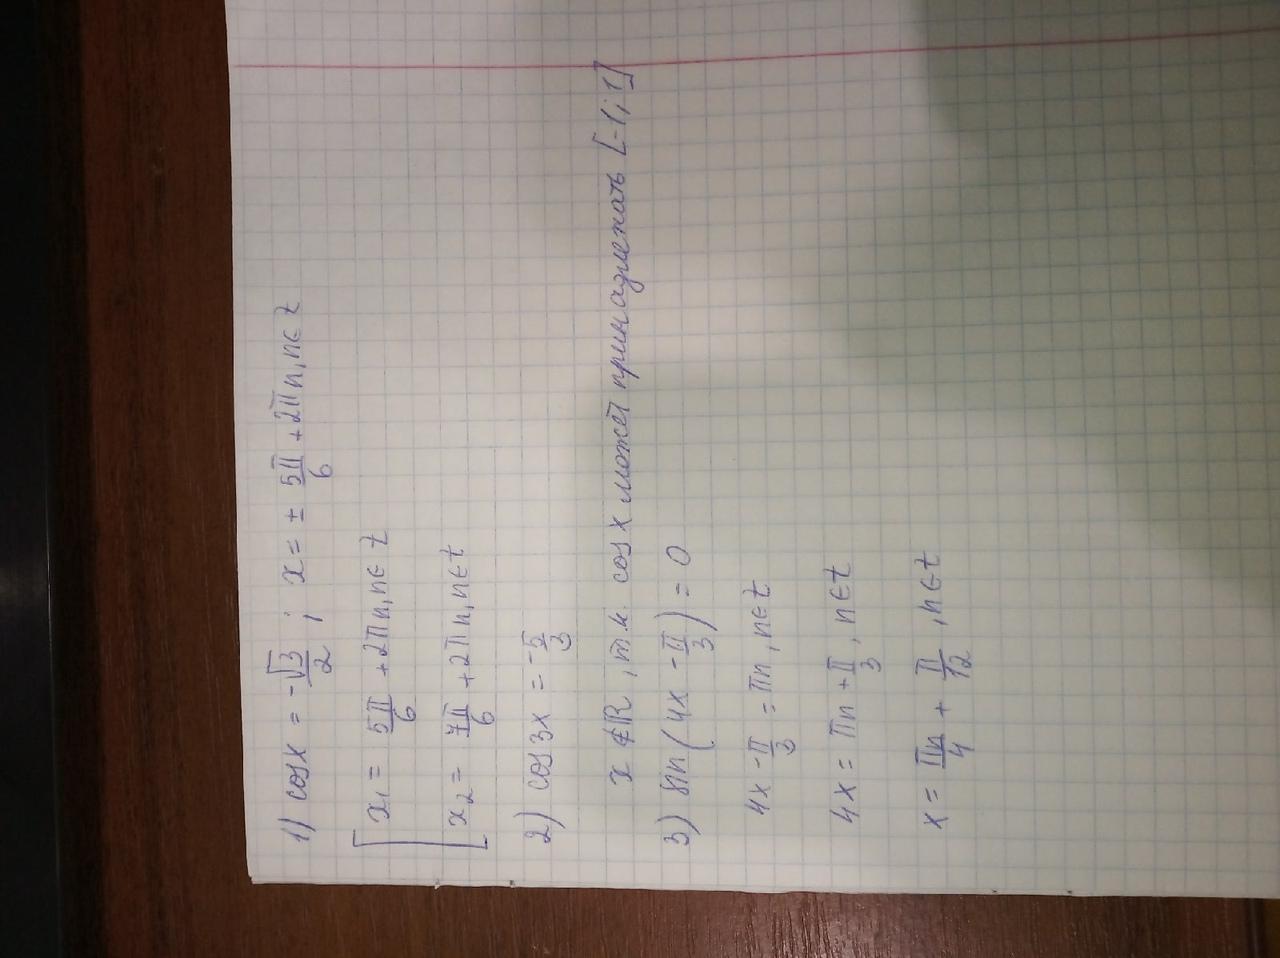 1) cosx = -√3/2 ; x = ± 5π/6 + 2πn, n∈Z
[ x₁ = 5π/6 + 2πn, n∈Z
x₂ = 7π/6 + 2πn, n∈Z
2) cos3x = -5/3
x ∉ ℝ, т.к. cosx может принадлежать [-1; 1]
3) sin(4x - π/3) = 0
4x - π/3 = πn, n∈Z
4x = πn + π/3, n∈Z
x = πn/4 + π/12, n∈Z